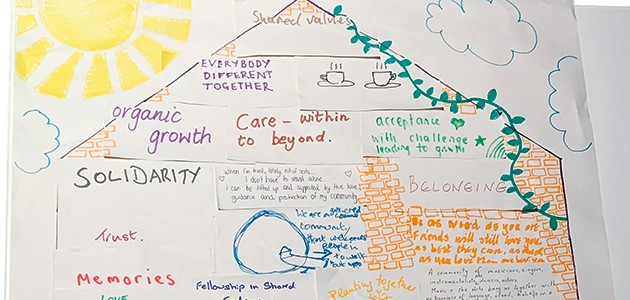 Shared values
EVERYBODY
DIFFERENT
TOGETHER
organic
growth
Care - within
to beyond.
acceptance
with challenge
leading to growth
SOLIDARITY
When I'm tired, lonely, out of sorts...
I don't have to stand alone
I can be lifted up and supported by the love,
guidance and protection of my community
BELONGING
Trust.
We are a
community,
that welcomes
people in
to walk
Be as weird as you are
Friends will still love you
as best they can, as
as you love them
Memories
LOVE
Fellowship in Shared
Planting together
A community of musicians, singers,
instrumentalists, dancers,
together with
of language,